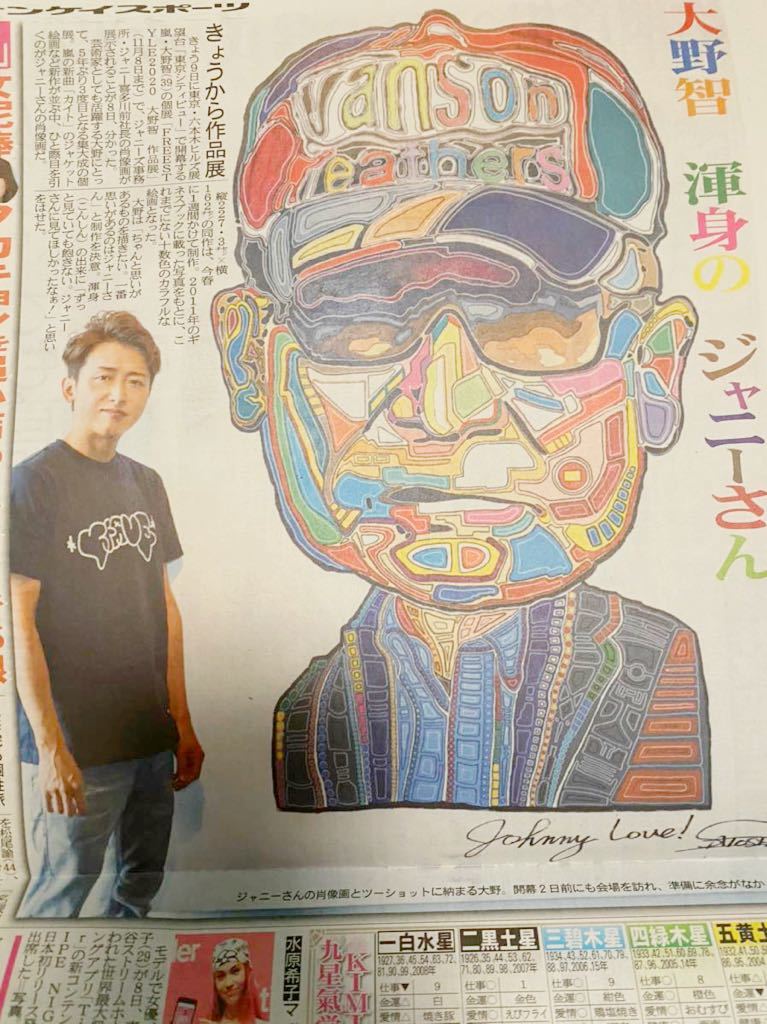 ンケイスポーツ
大野智 渾身の ジャニーさん
きょうから作品展
きょう9日に東京・六本木ヒルズ展
望台「東京シティビュー」で開幕する
嵐・大野智(39)の個展「FREEST
YLE2020 大野智 作品展」
(11月8日まで)で、ジャニーズ事務
所・ジャニー喜多川前社長の肖像画が
展示されることが8日、分かった。
芸術家としても活躍する大野にとっ
て、5年ぶり3度目となる集大成の個
展。嵐の新曲「カイト」のジャケット
絵画など新作が並ぶ中、ひと際目を引
くのがジャニーさんの肖像画だ。
縦227・3㌢、横
162㌢の同作は、今春
に1週間かけて制作。2011年のギ
ネスブックに載った写真をもとに、こ
れまでにない十数色のカラフルな
絵画となった。
大野は「ちゃんと思いが
あるものを描きたい。一番
思いがあるのはジャニーさ
ん」と制作を決意。渾身
(こんしん)の出来に「ずっ
と見ていても飽きない。ジャニー
さんに見てほしかったなぁ!」と思い
をはせた。
Vanson
Leathers
Johnny Love!
ジャニーさんの肖像画とツーショットに納まる大野。開幕2日前にも会場を訪れ、準備に余念がなか
を松尾諭(44)、
モデルで女優
子(29)が8日、
谷ストリームホー
われた世界最大
ングアプリ「T
r」の新コンテン
IPE NIG
日本初リリース
出席した=写真
水原希子マ
KIMI
九星気学
一白水星
1927,36,45,54,63,72,
81,90,99,2008年
仕事▼ 9
金運△ 白
愛情△ 焼き豚
二黒土星
1926,35,44,53,62,
71,80,89,98,2007年
仕事○ 1
金運○ 金色
愛情○ えびフライ
三碧木星
1934,43,52,61,70,79,
88,97,2006,15年
仕事◎ 9
金運○ 紺色
愛情◎ 塩焼き
四緑木星
1933,42,51,60,69,78,
87,96,2005,14年
仕事○ 8
金運○ 橙色
愛情◎ おむすび
五黄土
1932,41,50,
86,95,2004
仕事▼
金運△
愛情△